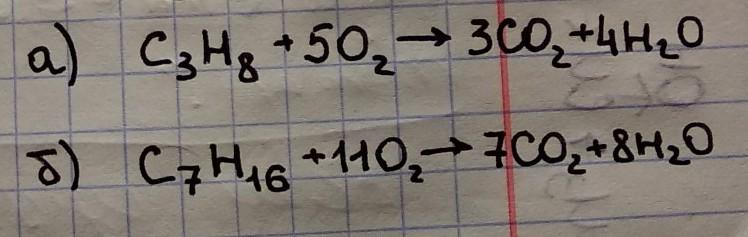 а) C₃H₈ + 5O₂ → 3CO₂ + 4H₂O
б) C₇H₁₆ + 11O₂ → 7CO₂ + 8H₂O